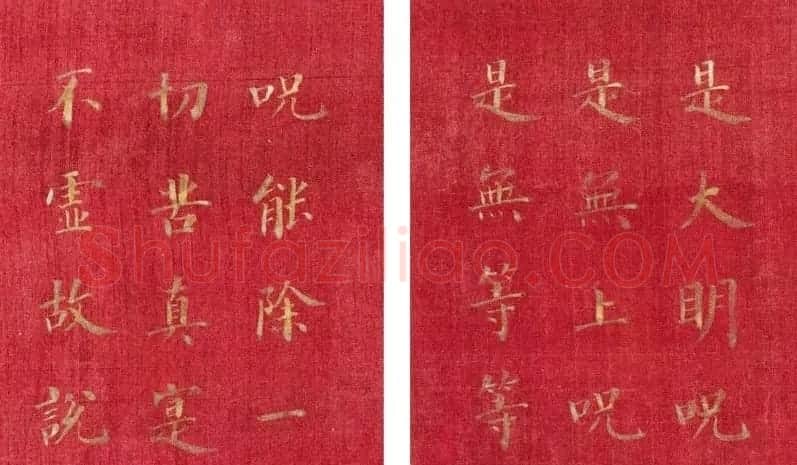 是大明呪
是無上呪
是無等等
呪能除一
切苦真寔
不虛故說
Shufaziliao.COM